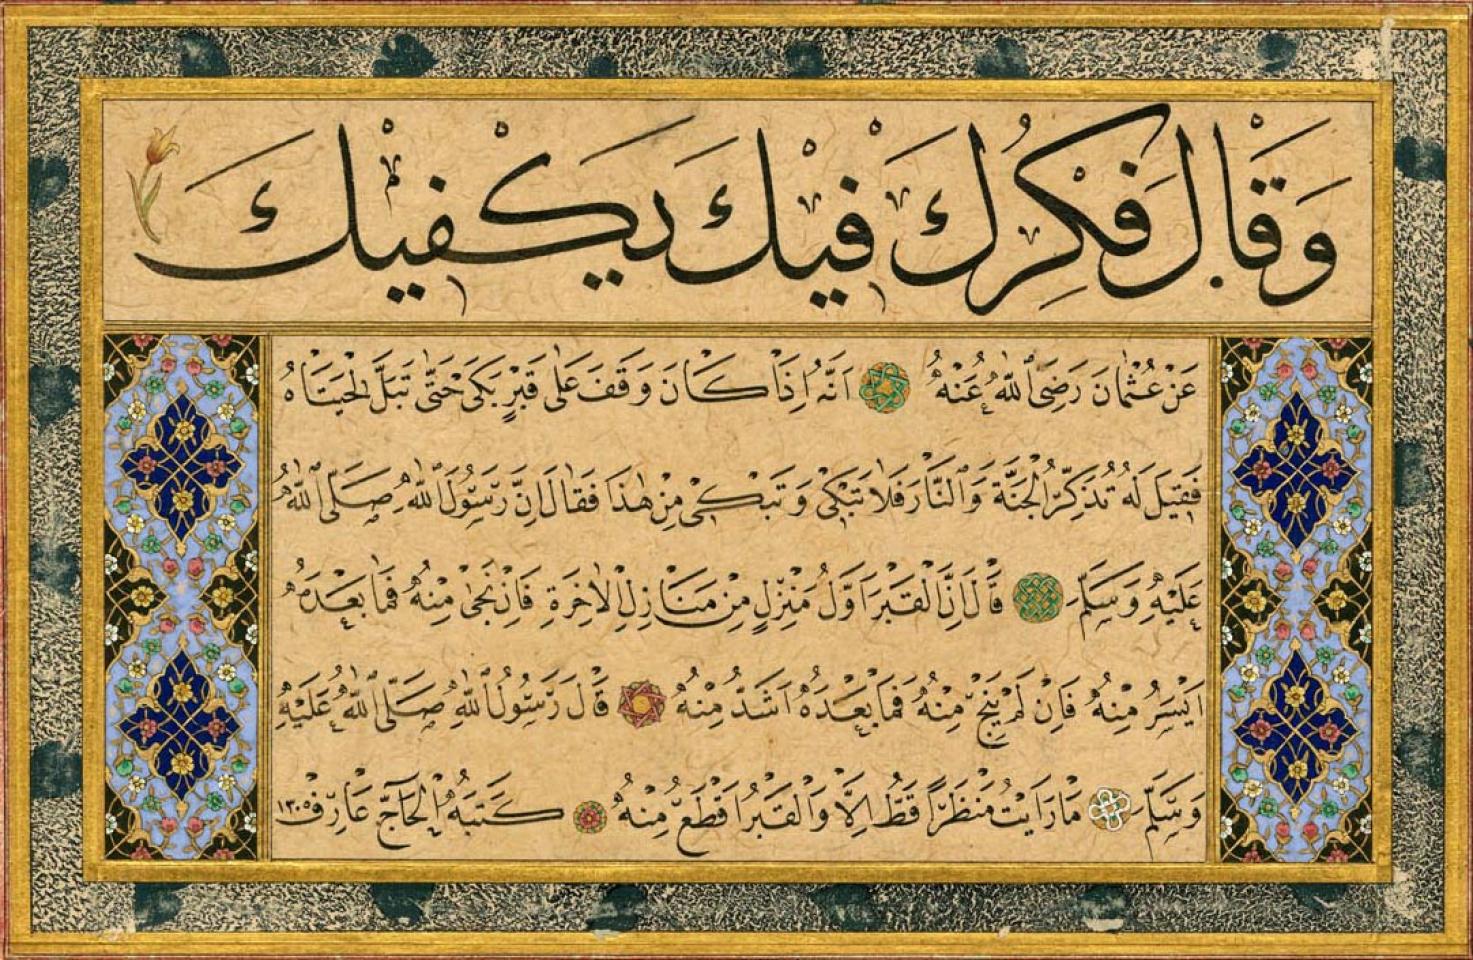 وَقَالَ فَكِرُكَ فِيْكَ يَكْفِيْكَ
عَنْ عُثْمَانَ رَضِىَ اللّٰهُ عَنْهُ اَنَّهُ اِذَا كَانَ وَقَفَ عَلٰى قَبْرٍ بَكٰى حَتّٰى تَبَلَّ لِحْيَتَاهُ
فَقِيلَ لَهُ تُذَكِّرُ الْجَنَّةَ وَالنَّارَ فَلَا تَبْكِى وَتَبْكِى مِنْ هٰذَا فَقَالَ اِنَّ رَسُولَ اللّٰهِ صَلَّى اللّٰهُ
عَلَيْهِ وَسَلَّمَ قَالَ اِنَّ الْقَبْرَ اَوَّلُ مَنْزِلٍ مِنْ مَنَازِلِ الْاٰخِرَةِ فَاِنْ نَجٰى مِنْهُ فَمَا بَعْدَهُ
اَيْسَرُ مِنْهُ فَاِنْ لَمْ يَنْجُ مِنْهُ فَمَا بَعْدَهُ اَشَدُّ مِنْهُ قَالَ رَسُولُ اللّٰهِ صَلَّى اللّٰهُ عَلَيْهِ
وَسَلَّمَ مَا رَاَيْتُ مَنْظَرًا قَطُّ اِلَّا وَالْقَبْرُ اَقْطَعُ مِنْهُ كَتَبَهُ الْحَاجّ عَارِفْ ١٣٠٥